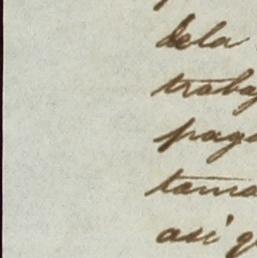 dela
trabaj
paga
toma
asi q